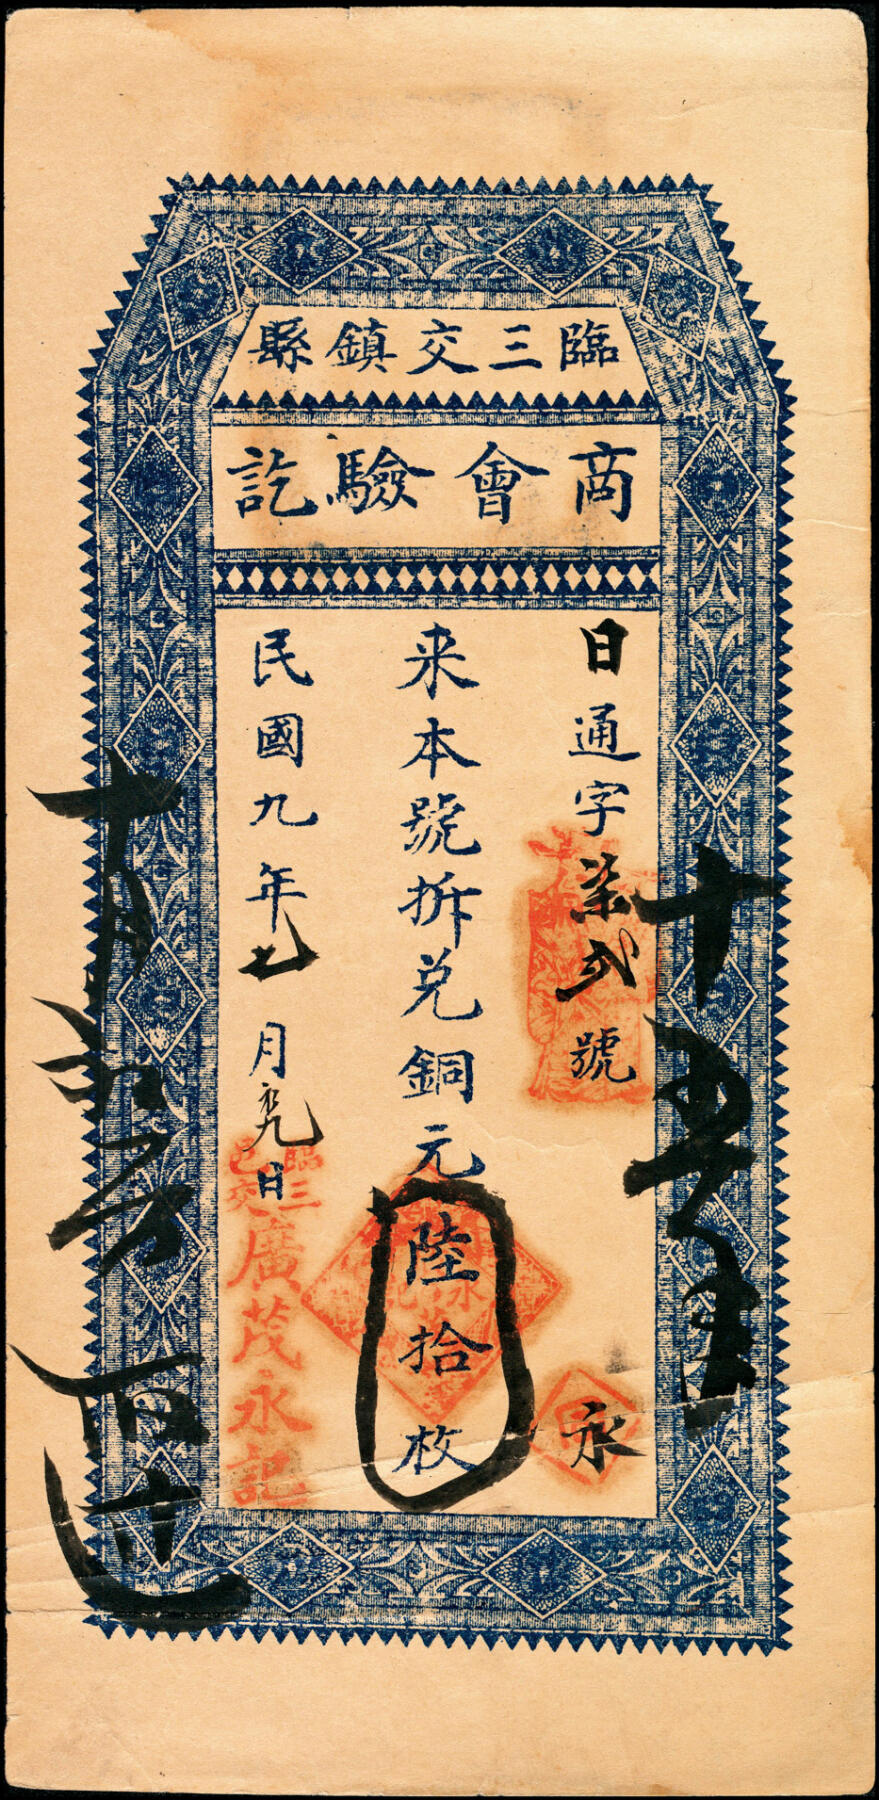 臨三交鎮縣
商會驗訖
日通字柒弍號
永
来本號拆兑銅元陸拾枚
民國九年七月
日
臨三
邑交
廣茂永記
十
十月